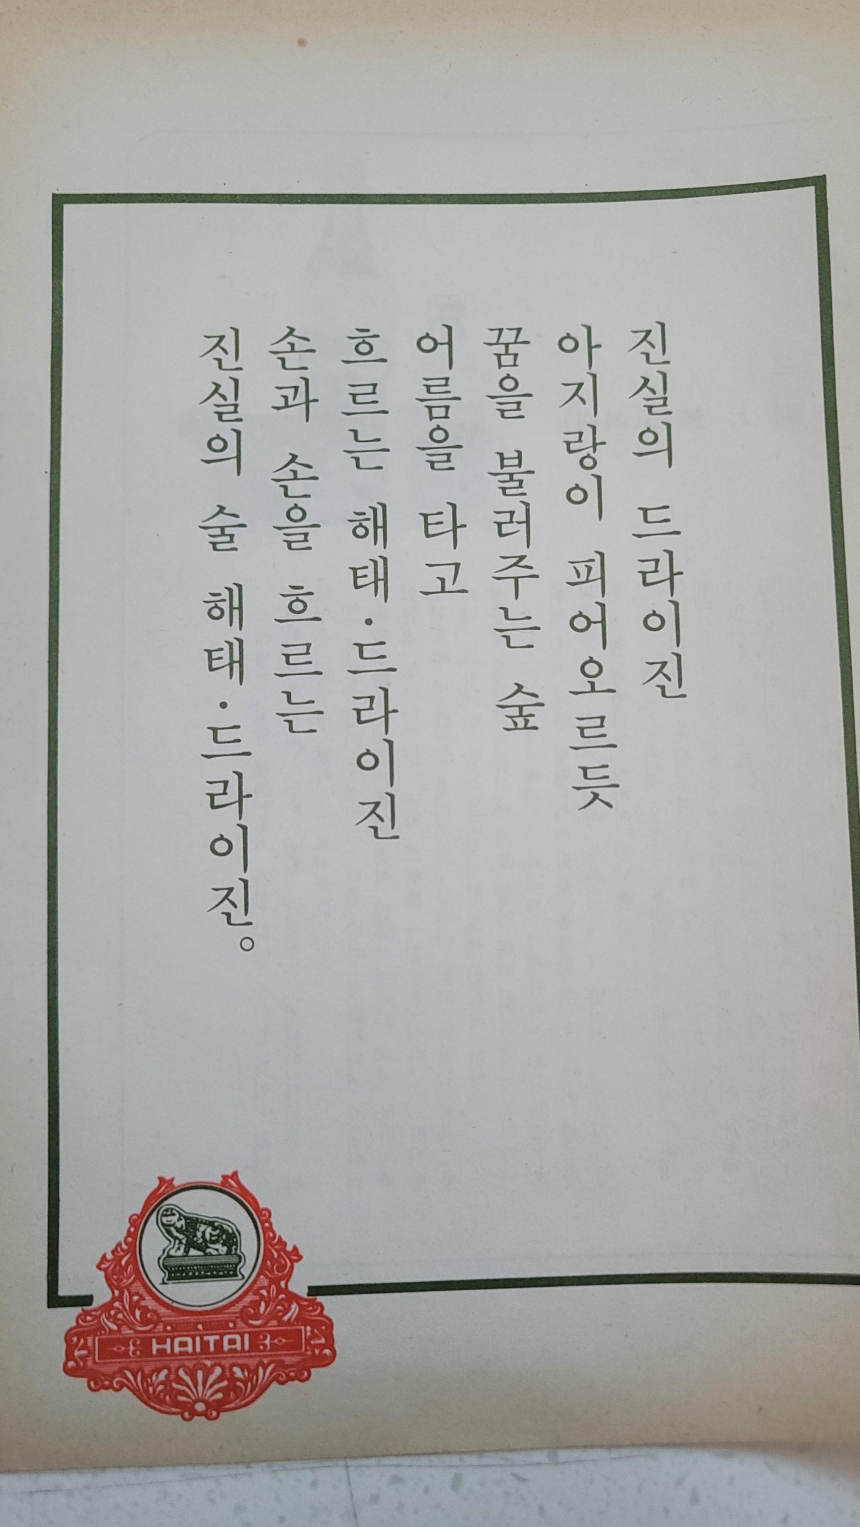 진실의 드라이진
아지랑이 피어오르듯
꿈을 불러주는 숲
어름을 타고
흐르는 해태·드라이진
손과 손을 흐르는
진실의 술 해태·드라이진。
HAITAI